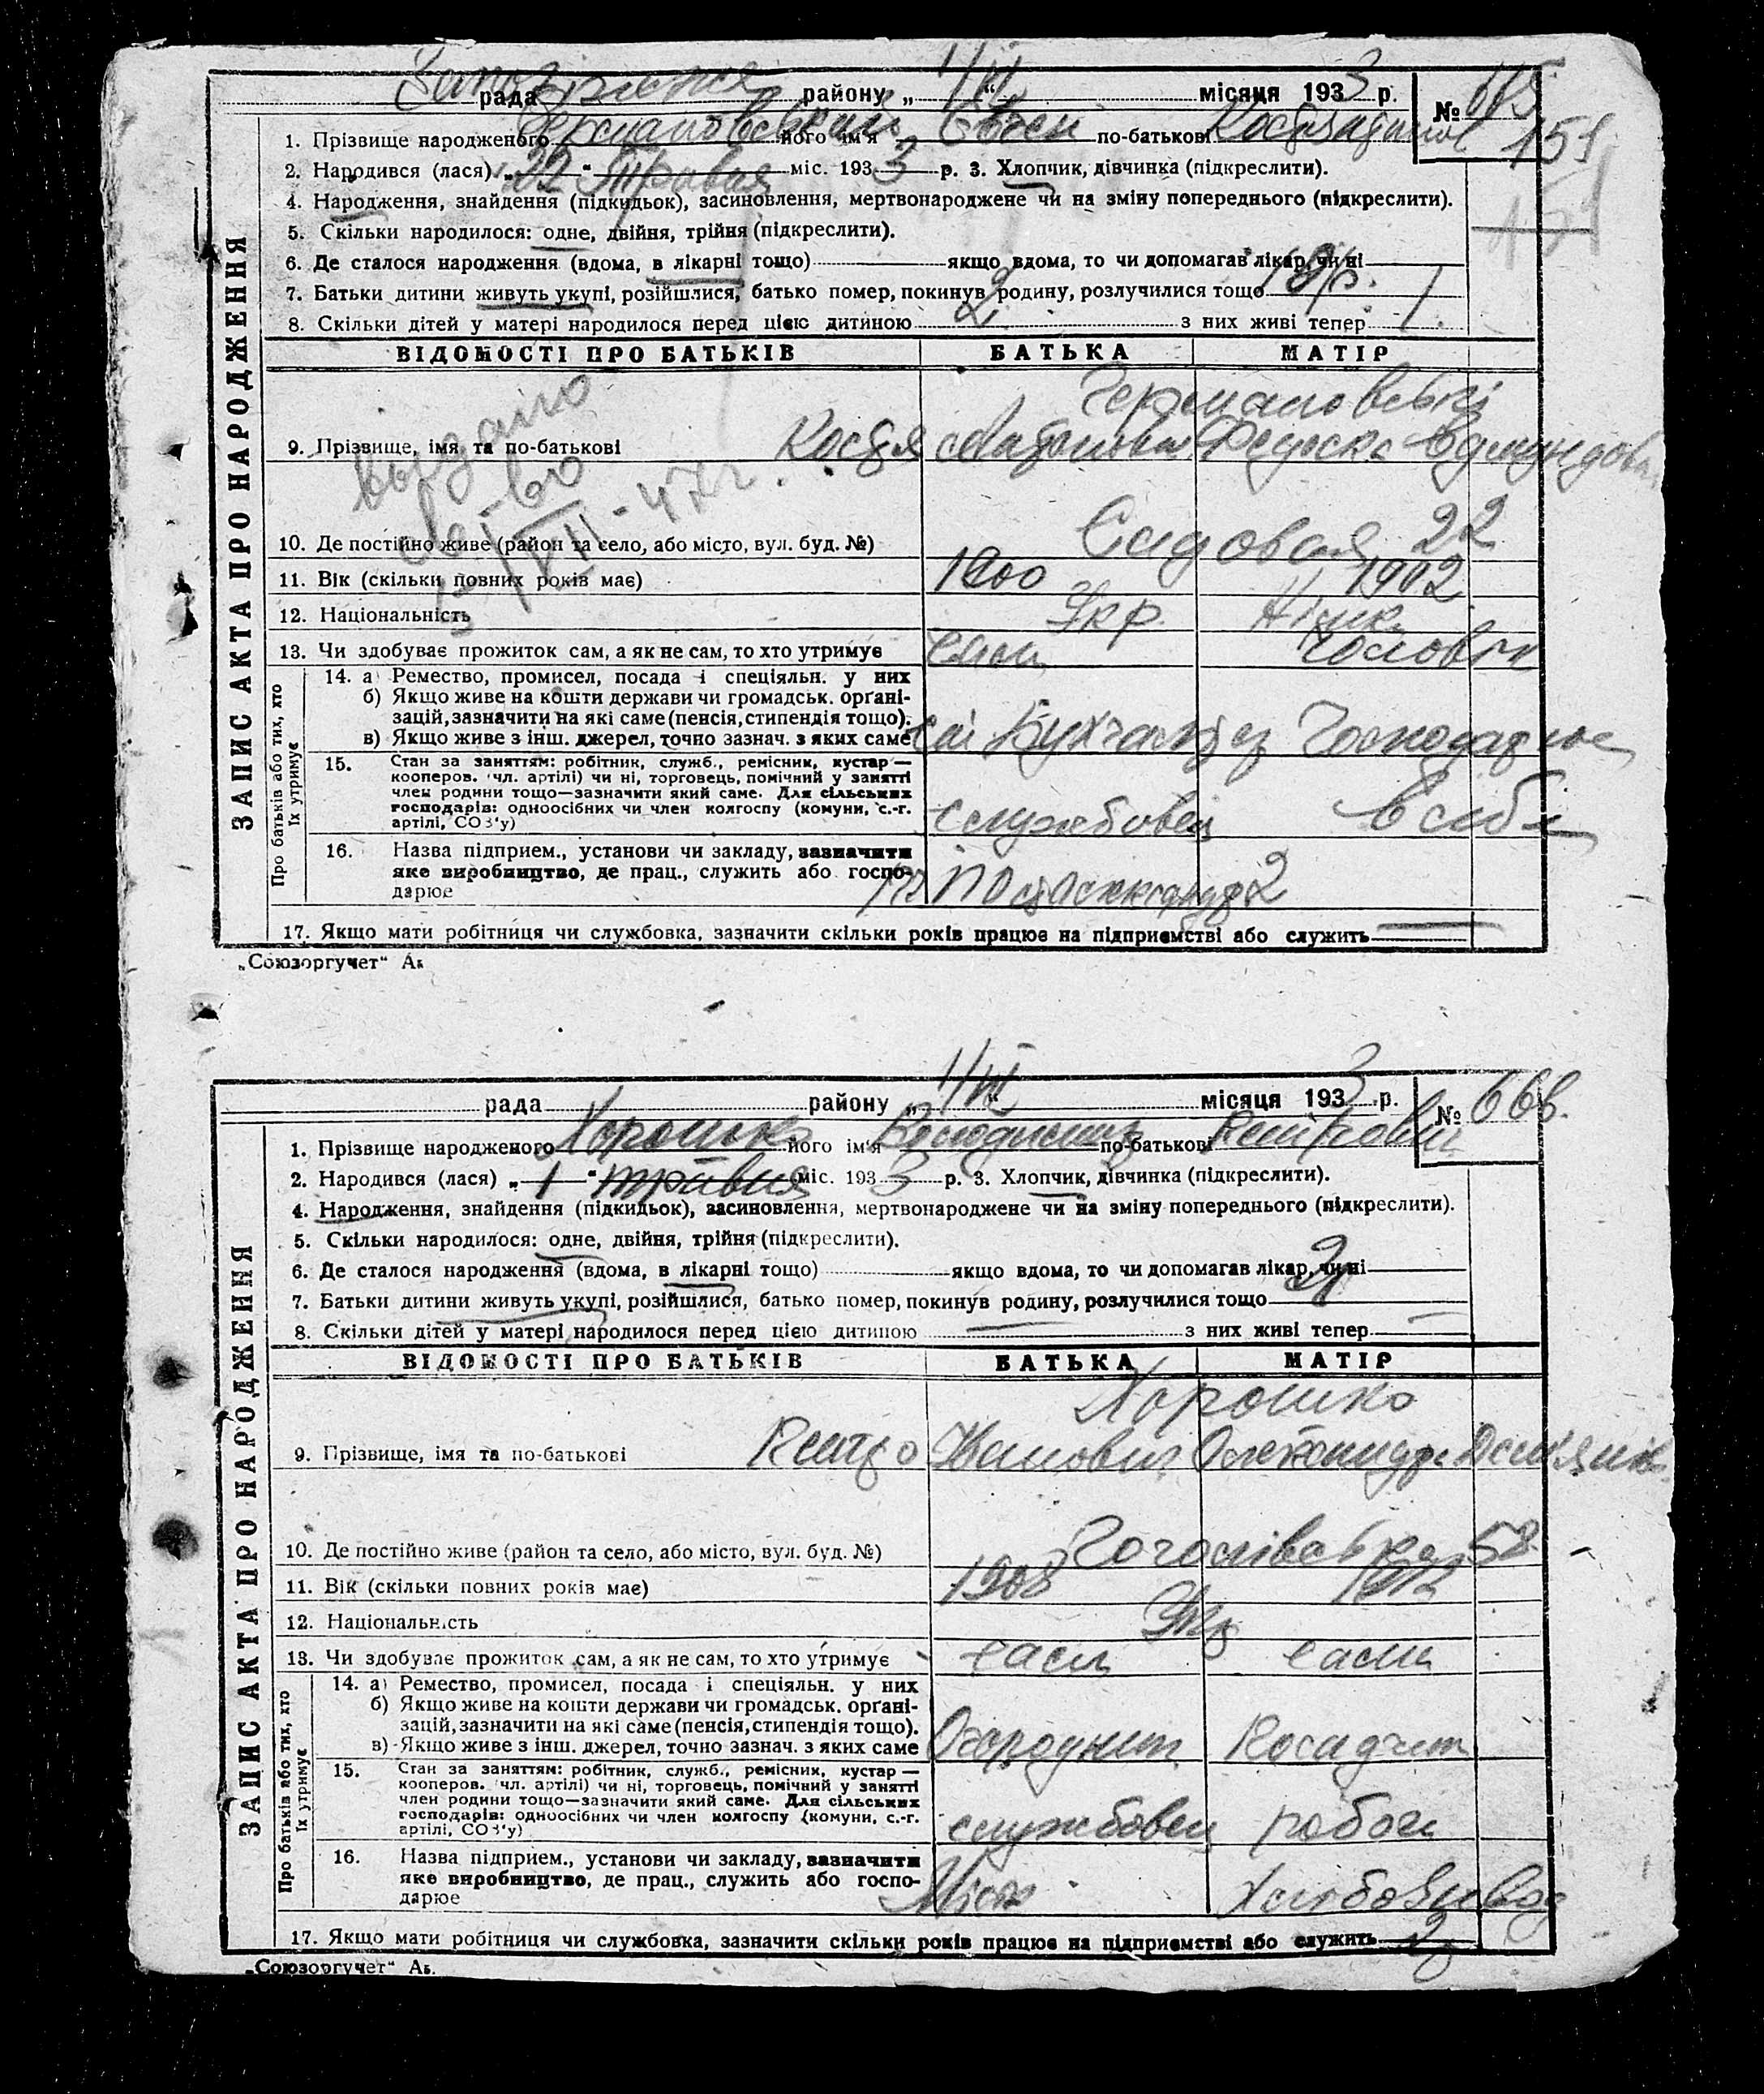 рада району „ 1/VI “ місяця 1933 р. № 665
159
1. Прізвище народженого Германовський його ім'я Євген по-батькові
2. Народився (лася) „22“ Травня міс. 1933 р. 3. Хлопчик, дівчинка (підкреслити).
4. Народження, знайдення (підкидьок), засиновлення, мертвонароджене чи на зміну попереднього (підкреслити).
5. Скільки народилося: одне, двійня, трійня (підкреслити).
6. Де сталося народження (вдома, в лікарні тощо) якщо вдома, то чи допомагав лікар, чи ні
7. Батьки дитини живуть укупі, розійшлися, батько помер, покинув родину, розлучилися тощо
8. Скільки дітей у матері народилося перед цією дитиною 2 з них живі тепер 1
ЗАПИС АКТА ПРО НАРОДЖЕННЯ
ВІДОМОСТІ ПРО БАТЬКІВ БАТЬКА МАТІР
Германовські
9. Прізвище, імя та по-батькові
выдано
св-во
5/VII-47г.
10. Де постійно живе (район та село, або місто, вул. буд. №) Садовая 22
11. Вік (скільки повних років має) 1900 1902
12. Національність Укр. Німк.
13. Чи здобуває прожиток сам, а як не сам, то хто утримує сам чоловік
Про батьків або тих, хто їх утримує
14. а) Ремество, промисел, посада і спеціяльн. у них
б) Якщо живе на кошти держави чи громадськ. орґані-
зацій, зазначити на які саме (пенсія, стипендія тощо).
в) Якщо живе з інш. джерел, точно зазнач. з яких саме Бухгалтер
15. Стан за заняттям: робітник, служб., ремісник, кустар —
кооперов. чл. артілі) чи ні, торговець, помічний у занятті
член родини тощо—зазначити який саме. Для сільських
господарів: одноосібних чи член колгоспу (комуни, с.-г.
артілі, СОЗ'у) службовец
16. Назва підприєм., установи чи закладу, зазначити
яке виробництво, де прац., служить або госпо-
дарює
17. Якщо мати робітниця чи службовка, зазначити скільки років працює на підприємстві або служить
„Союзоргучет“
рада району „ 1/VI “ місяця 1933 р. № 666.
1. Прізвище народженого Хорошко його ім'я Володимир по-батькові Петрович
2. Народився (лася) „1“ травня міс. 1933 р. 3. Хлопчик, дівчинка (підкреслити).
4. Народження, знайдення (підкидьок), засиновлення, мертвонароджене чи на зміну попереднього (підкреслити).
5. Скільки народилося: одне, двійня, трійня (підкреслити).
6. Де сталося народження (вдома, в лікарні тощо) якщо вдома, то чи допомагав лікар, чи ні
7. Батьки дитини живуть укупі, розійшлися, батько помер, покинув родину, розлучилися тощо
8. Скільки дітей у матері народилося перед цією дитиною з них живі тепер
ЗАПИС АКТА ПРО НАРОДЖЕННЯ
ВІДОМОСТІ ПРО БАТЬКІВ БАТЬКА МАТІР
Хорошко
9. Прізвище, імя та по-батькові Петро Іванович Олександра
10. Де постійно живе (район та село, або місто, вул. буд. №) Гоголівська 58
11. Вік (скільки повних років має) 1908 1912
12. Національність Укр
13. Чи здобуває прожиток сам, а як не сам, то хто утримує сам сама
Про батьків або тих, хто їх утримує
14. а) Ремество, промисел, посада і спеціяльн. у них
б) Якщо живе на кошти держави чи громадськ. орґані-
зацій, зазначити на які саме (пенсія, стипендія тощо).
в) Якщо живе з інш. джерел, точно зазнач. з яких саме Огородник
15. Стан за заняттям: робітник, служб., ремісник, кустар —
кооперов. чл. артілі) чи ні, торговець, помічний у занятті
член родини тощо—зазначити який саме. Для сільських
господарів: одноосібних чи член колгоспу (комуни, с.-г.
артілі, СОЗ'у) службовец робот
16. Назва підприєм., установи чи закладу, зазначити
яке виробництво, де прац., служить або госпо-
дарює Хлібозавод
17. Якщо мати робітниця чи службовка, зазначити скільки років працює на підприємстві або служить 2р
„Союзоргучет“